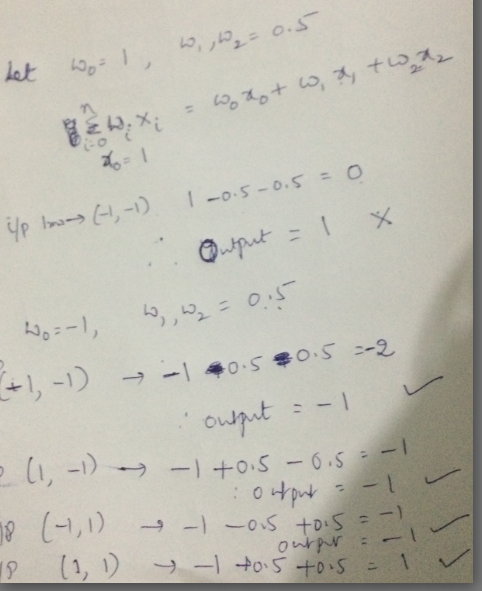 Let w₀ = 1, w₁, w₂ = 0.5
n
Σ wᵢ xᵢ = w₀x₀ + w₁x₁ + w₂x₂
i=0
x₀ = 1
i/p → (-1,-1) 1 -0.5 -0.5 = 0
∴ Output = 1 ×
w₀ = -1, w₁, w₂ = 0.5
(-1, -1) → -1 -0.5 -0.5 = -2
∴ output = -1 ✓
(1, -1) → -1 +0.5 -0.5 = -1
∴ output = -1 ✓
(-1, 1) → -1 -0.5 +0.5 = -1
output = -1 ✓
(1, 1) → -1 +0.5 +0.5 = 1 ✓